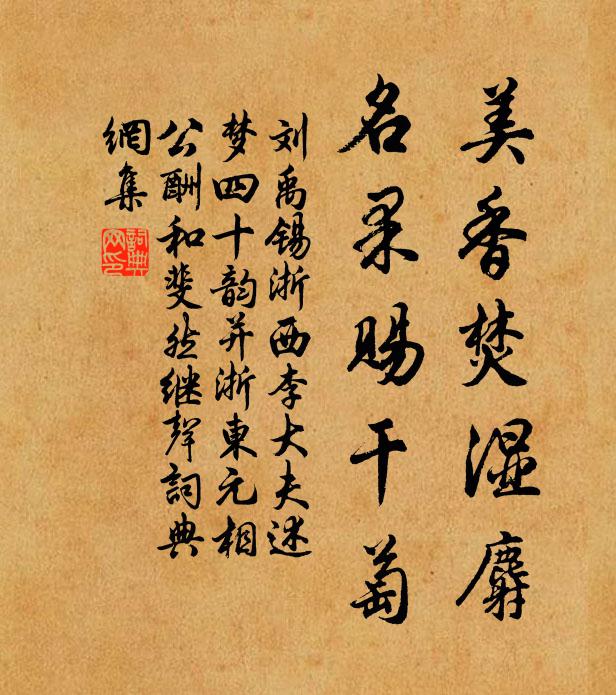 美香焚湿麝
名果赐干萄
刘禹锡浙西李大夫述
梦四十韵并浙東元相
公酬和斐然继聲詞典
網集
詞典
网印